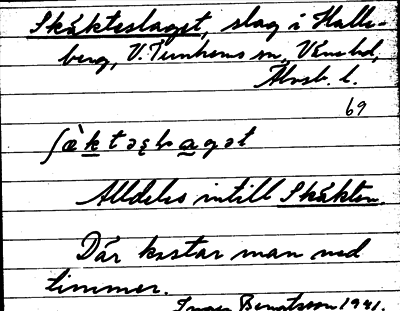 Skäkteslaget, slag i Halle-
berg, V. Tunhems sn, Väne hd,
Älvsb. l.
69
Alldeles intill Skäkten.
Där kastar man ned
timmer.
Inger Bengtsson 1941.